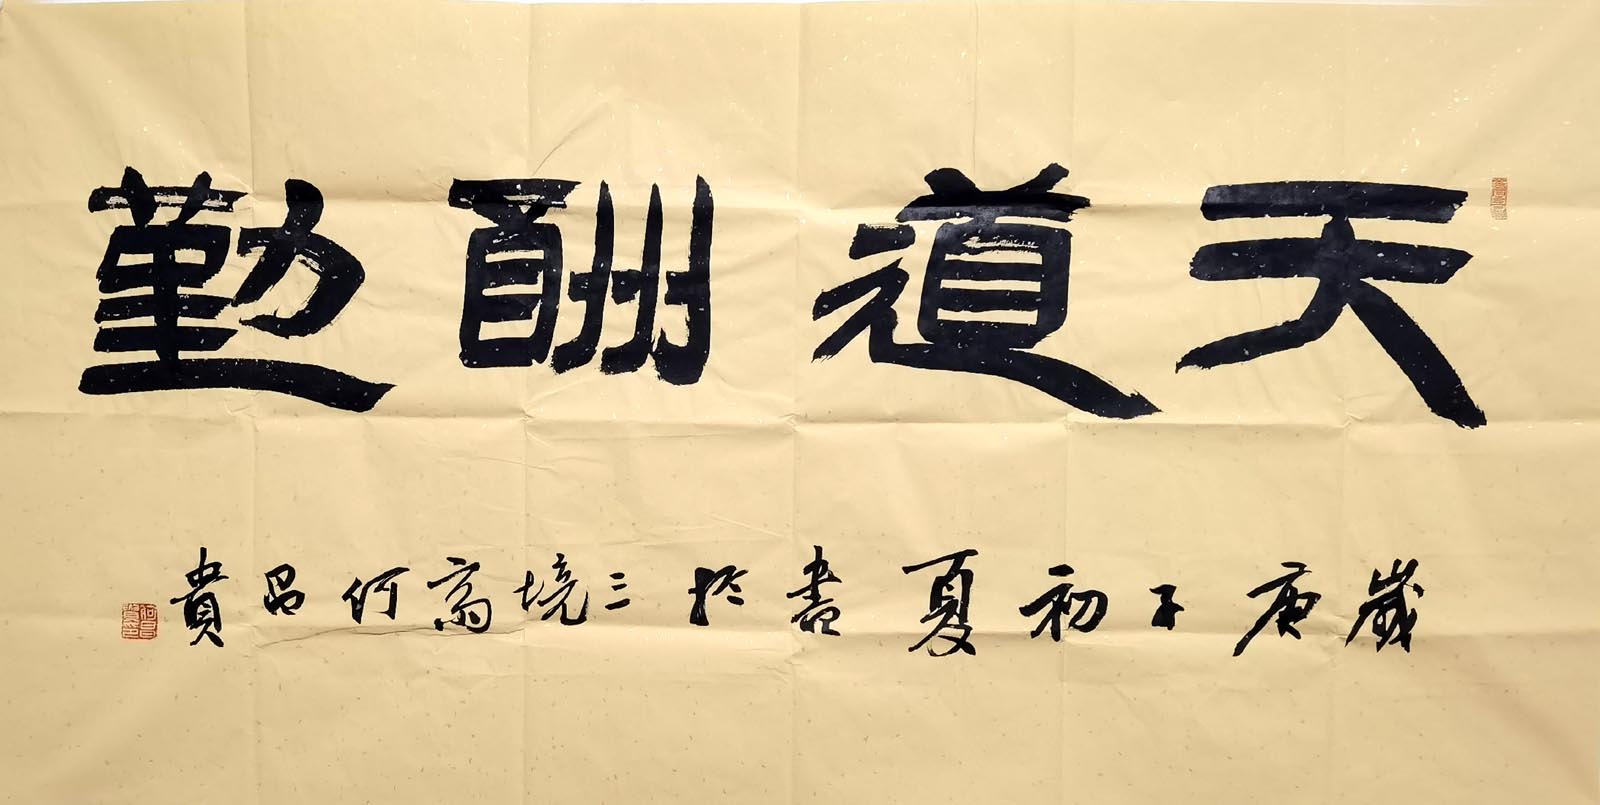 天道酬勤
歲庚子初夏書於三境齋何昌貴